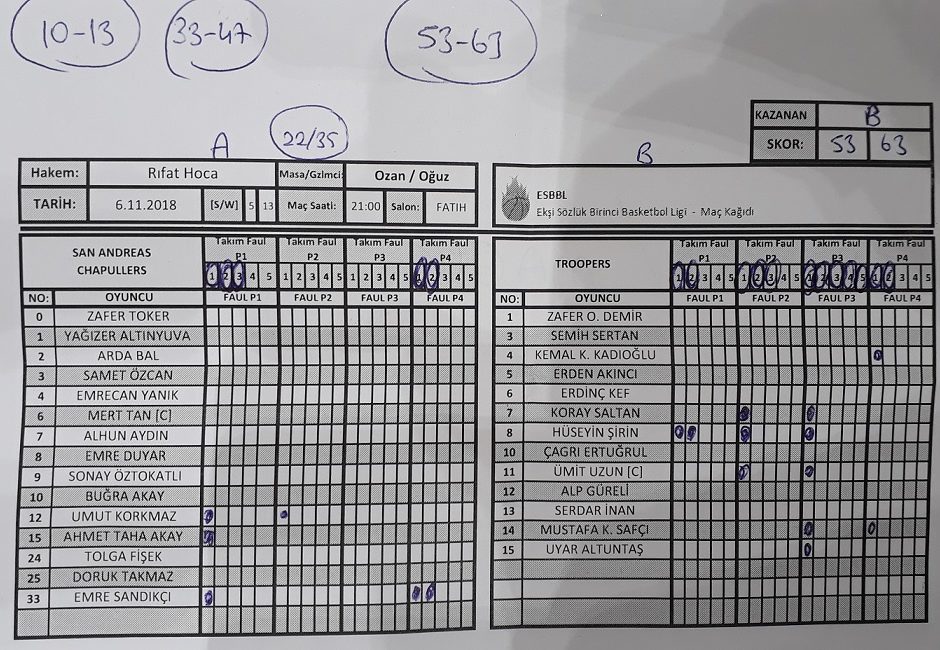 10-13 33-47 53-63
A 22/35 B
KAZANAN B
SKOR: 53 63
Hakem: Rıfat Hoca Masa/Gzlmci: Ozan / Oğuz
TARİH: 6.11.2018 [S/W] 5 13 Maç Saati: 21:00 Salon: FATIH
ESBBL
Ekşi Sözlük Birinci Basketbol Ligi - Maç Kağıdı
SAN ANDREAS CHAPULLERS
Takım Faul Takım Faul Takım Faul Takım Faul
P1 P2 P3 P4
1 2 3 4 5 1 2 3 4 5 1 2 3 4 5 1 2 3 4 5
NO: OYUNCU FAUL P1 FAUL P2 FAUL P3 FAUL P4
0 ZAFER TOKER
1 YAĞIZER ALTINYUVA
2 ARDA BAL
3 SAMET ÖZCAN
4 EMRECAN YANIK
6 MERT TAN [C]
7 ALHUN AYDIN
8 EMRE DUYAR
9 SONAY ÖZTOKATLI
10 BUĞRA AKAY
12 UMUT KORKMAZ
15 AHMET TAHA AKAY
24 TOLGA FİŞEK
25 DORUK TAKMAZ
33 EMRE SANDIKÇI
TROOPERS
Takım Faul Takım Faul Takım Faul Takım Faul
P1 P2 P3 P4
1 2 3 4 5 1 2 3 4 5 1 2 3 4 5 1 2 3 4 5
NO: OYUNCU FAUL P1 FAUL P2 FAUL P3 FAUL P4
1 ZAFER O. DEMİR
3 SEMİH SERTAN
4 KEMAL K. KADIOĞLU
5 ERDEN AKINCI
6 ERDİNÇ KEF
7 KORAY SALTAN
8 HÜSEYİN ŞİRİN
10 ÇAGRI ERTUĞRUL
11 ÜMİT UZUN [C]
12 ALP GÜRELİ
13 SERDAR İNAN
14 MUSTAFA K. SAFÇI
15 UYAR ALTUNTAŞ